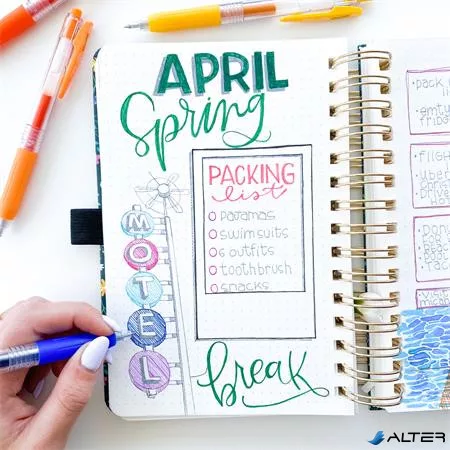 APRIL
Spring
PACKING
list
pajamas
swimsuits
6 outfits
toothbrush
snacks
MOTEL
break
pack
emty
fridge
FLIGH
Uber
Drive
visit
ALTER